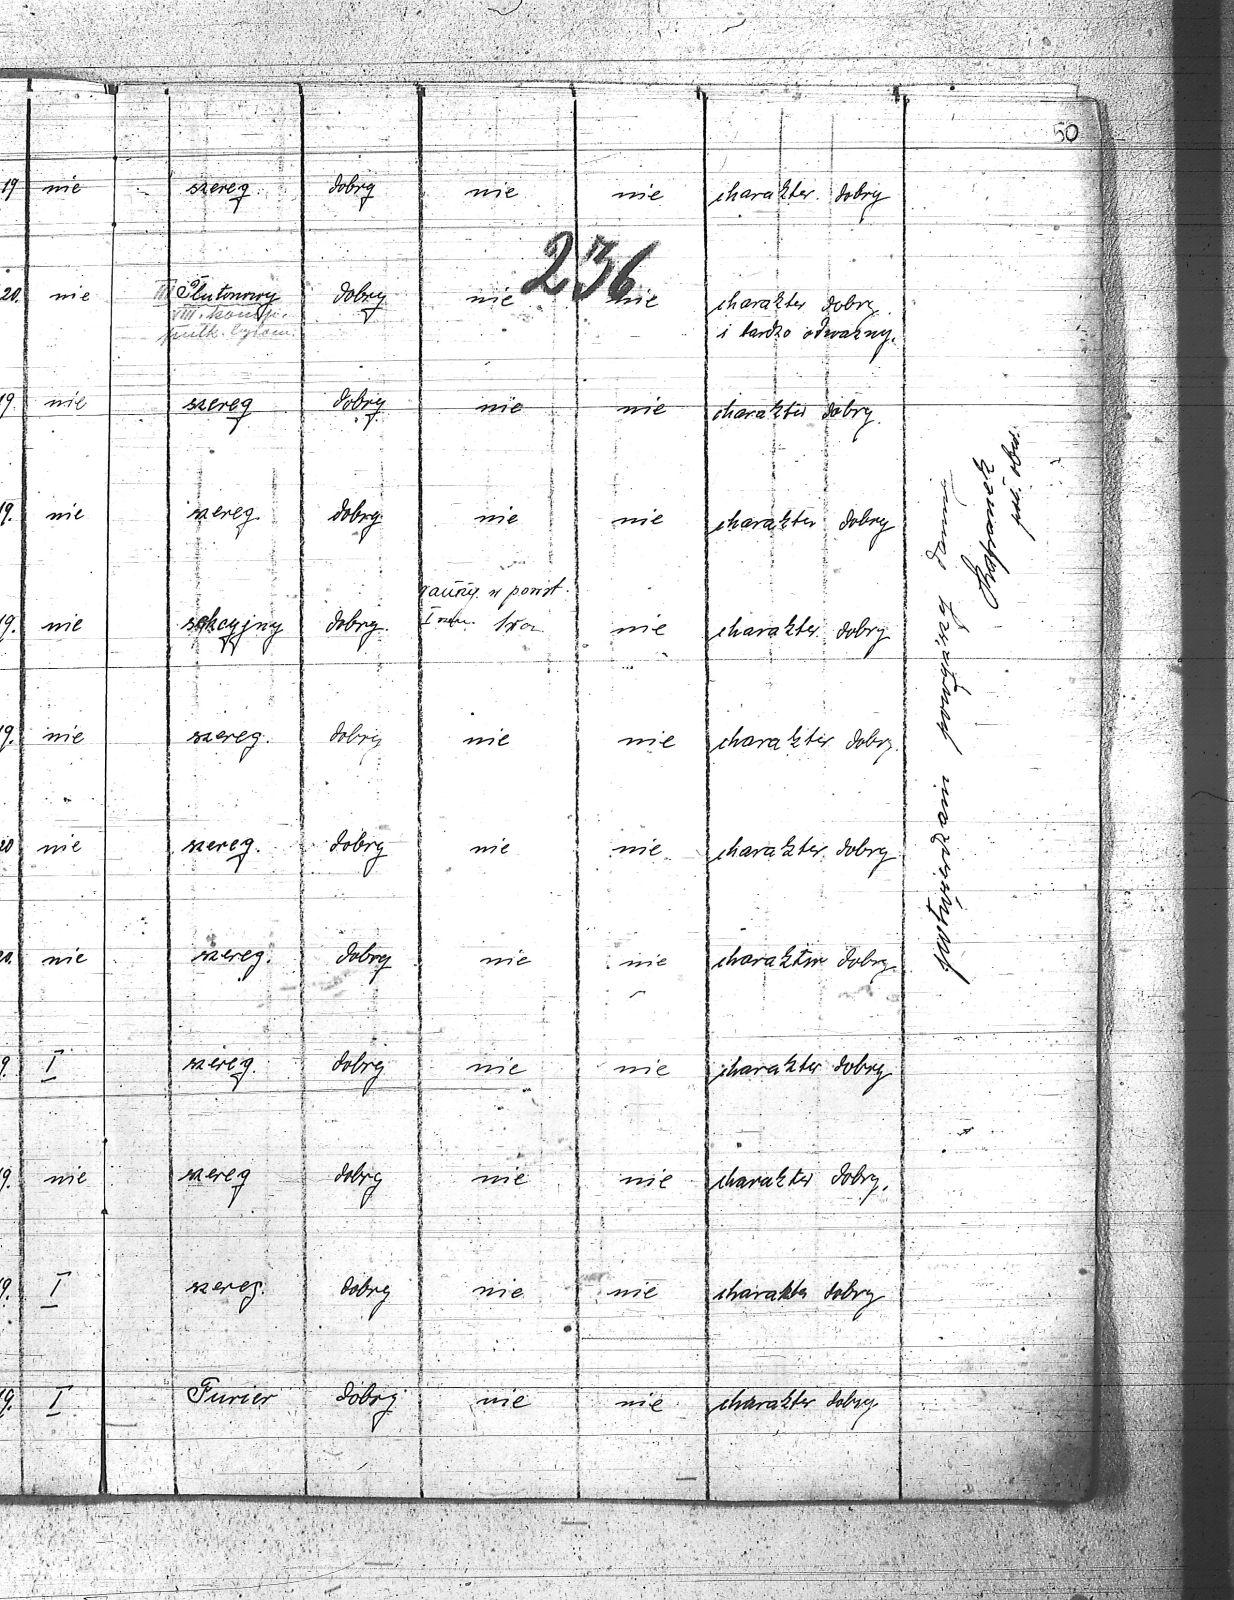 50
19 nie szereg dobry nie nie charakter dobry
236
20. nie Plutonowy dobry nie nie charakter dobry
III. komp.
pułk i bardzo odważny.
19 nie szereg dobry nie nie charakter dobry
19. nie szereg dobry nie nie charakter dobry
w powst.
19. nie sekcyjny dobry nie charakter dobry
19. nie szereg. dobry nie nie charakter dobry
20 nie szereg. dobry nie nie charakter dobry
20. nie szereg. dobry nie nie charakter dobry
9. I szereg. dobry nie nie charakter dobry
19. nie szereg dobry nie nie charakter dobry.
19. I szereg. dobry nie nie charakter dobry
19. I Furier dobry nie nie charakter dobry